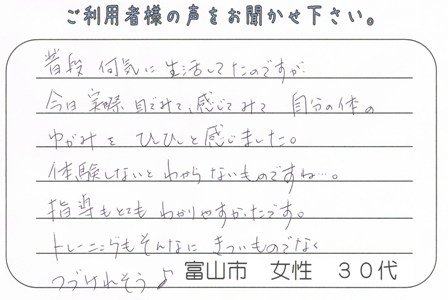 ご利用者様の声をお聞かせ下さい。
普段 何気に生活してたのですが
今日 実際 目でみて、感じてみて 自分の体の
ゆがみを ひしひしと感じました。
体験しないと わからないものですね…。
指導もとても わかりやすかったです。
トレーニングもそんなに きついものでなく
つづけれそう♪
富山市 女性 30代